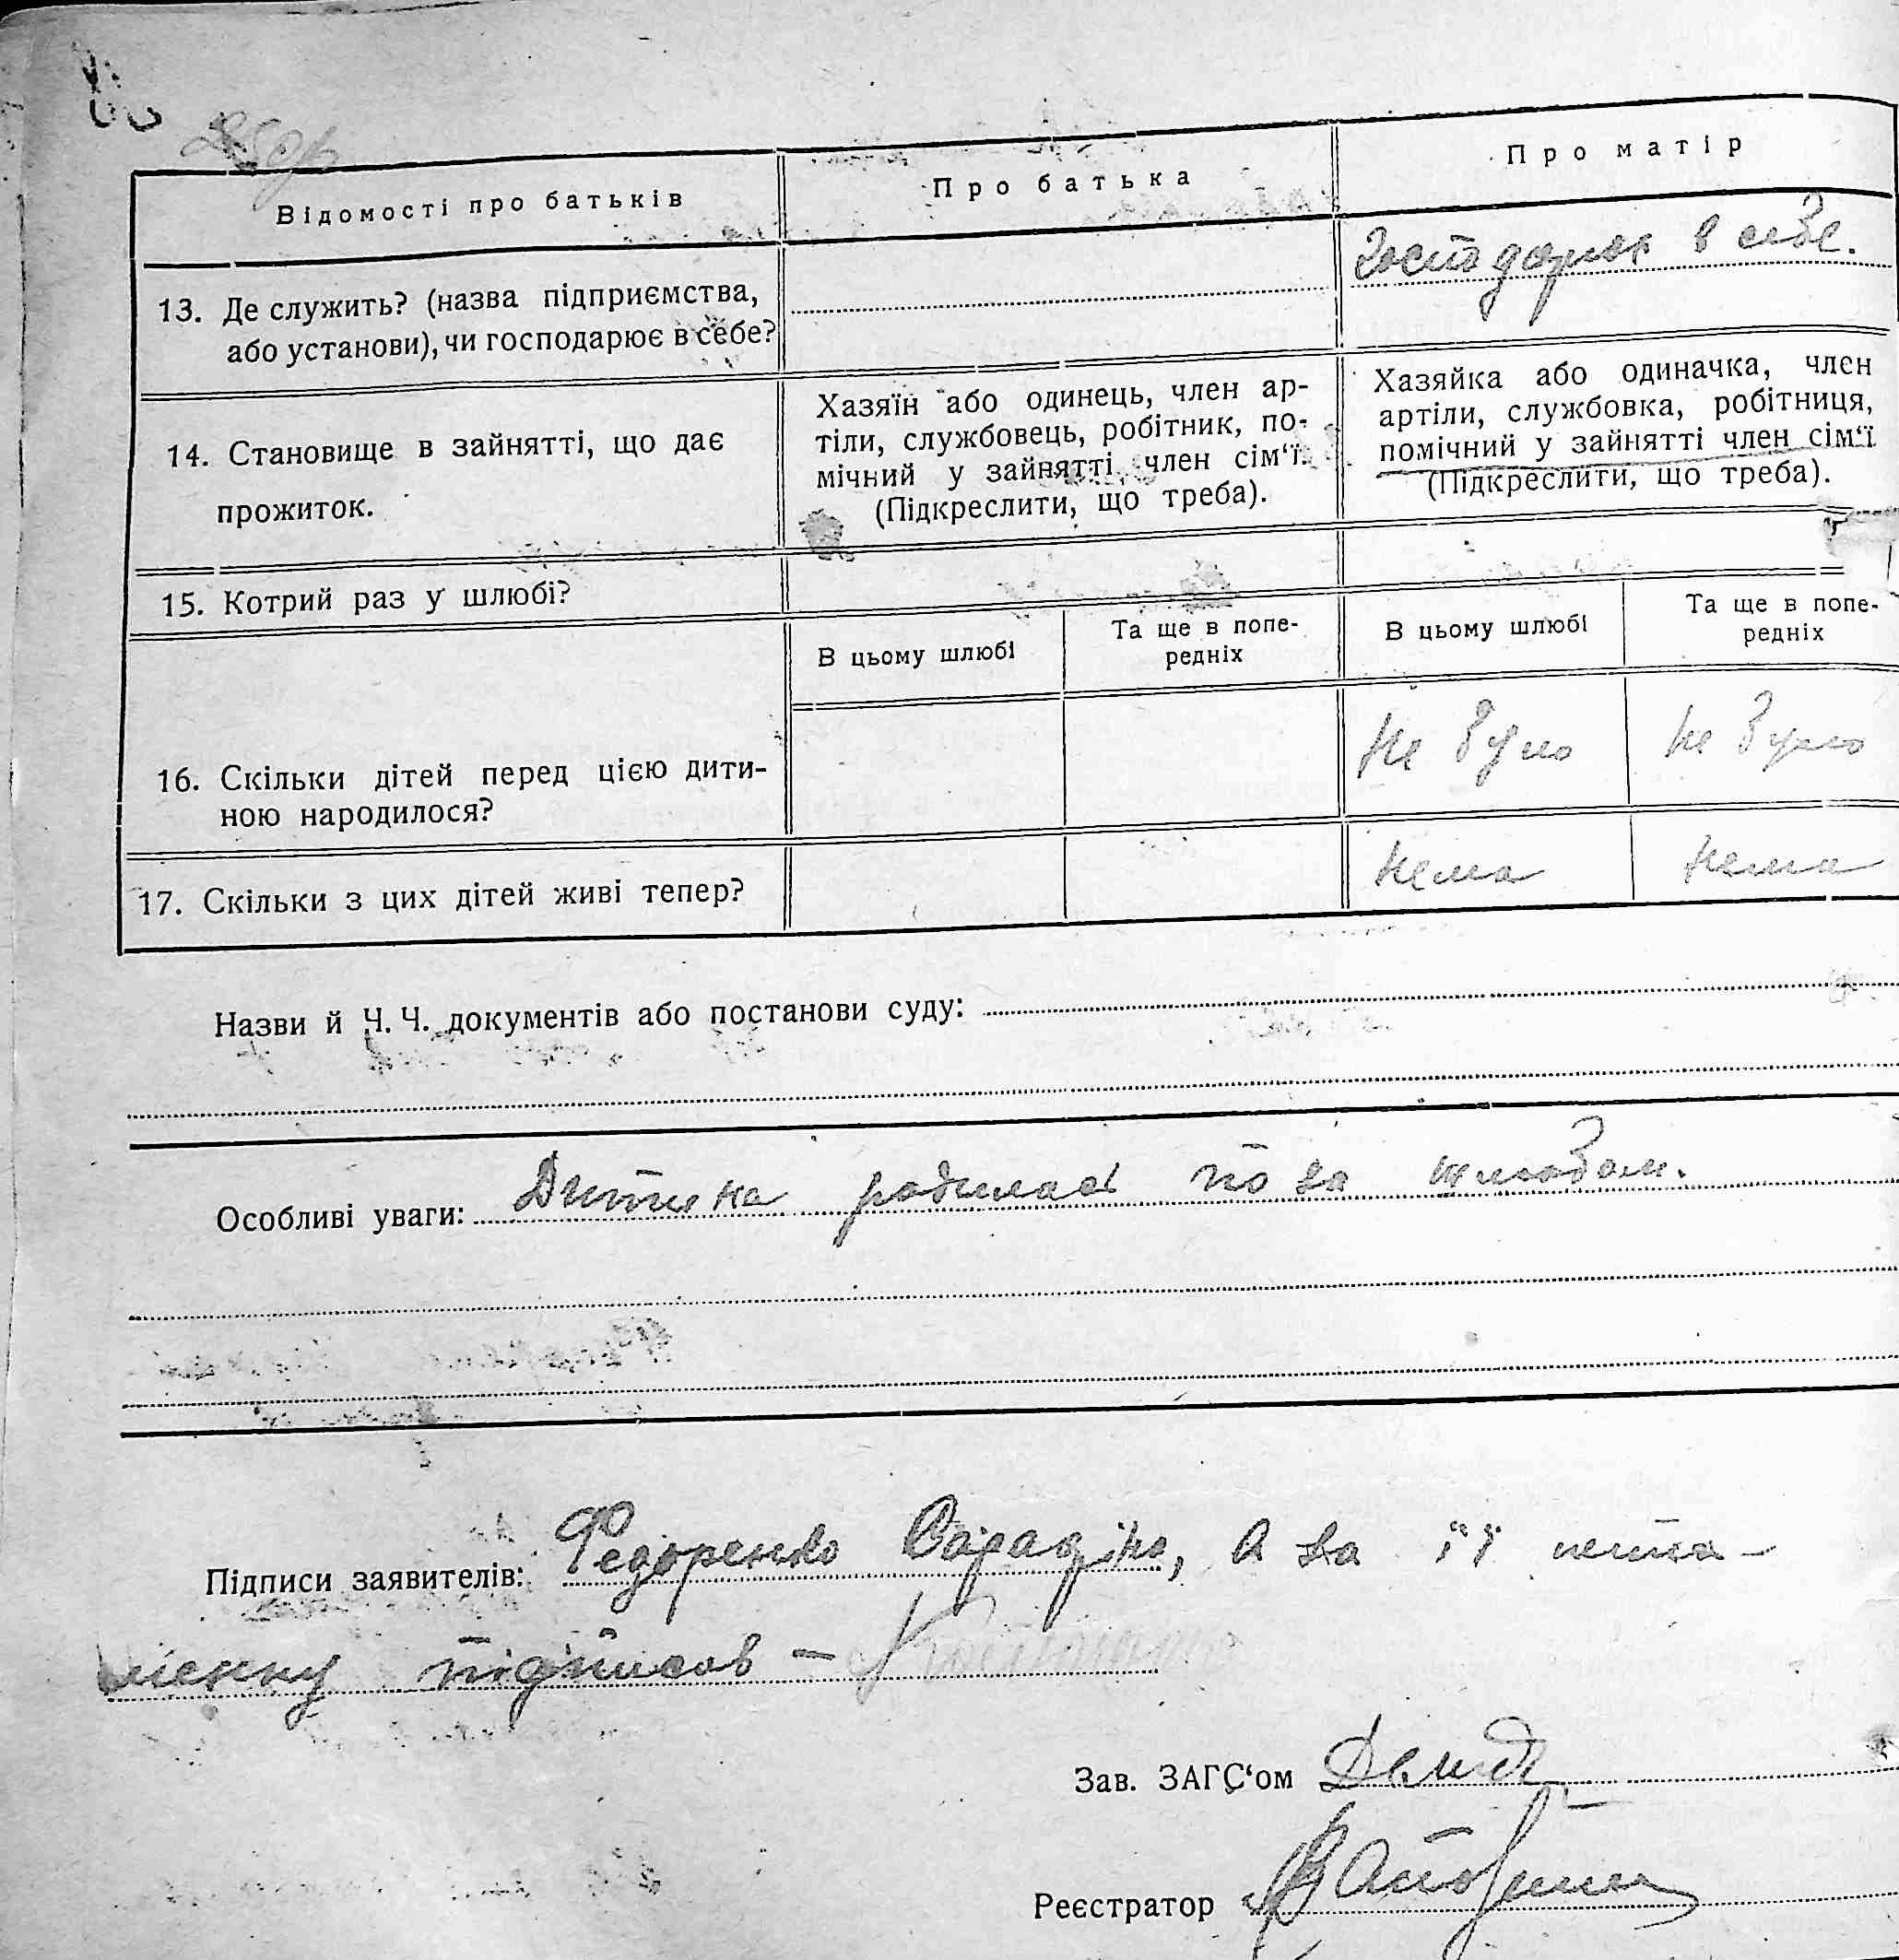 Відомості про батьків
Про батька
Про матір
13. Де служить? (назва підприємства,
або установи), чи господарює в себе?
Господарює в себе.
14. Становище в зайнятті, що дає
прожиток.
Хазяїн або одинець, член ар-
тіли, службовець, робітник, по-
мічний у зайнятті член сім‘ї.
(Підкреслити, що треба).
Хазяйка або одиначка, член
артіли, службовка, робітниця,
помічний у зайнятті член сім‘ї
(Підкреслити, що треба).
15. Котрий раз у шлюбі?
В цьому шлюбі
Та ще в попе-
редніх
В цьому шлюбі
Та ще в попе-
редніх
16. Скільки дітей перед цією дити-
ною народилося?
не було
не було
17. Скільки з цих дітей живі тепер?
нема
нема
Назви й Ч. Ч. документів або постанови суду:
Особливі уваги: Дитина родилась по за шлюбом.
Підписи заявителів: Федоренко, а за її непись-
менну підписав –
Зав. ЗАГС‘ом
Реєстратор